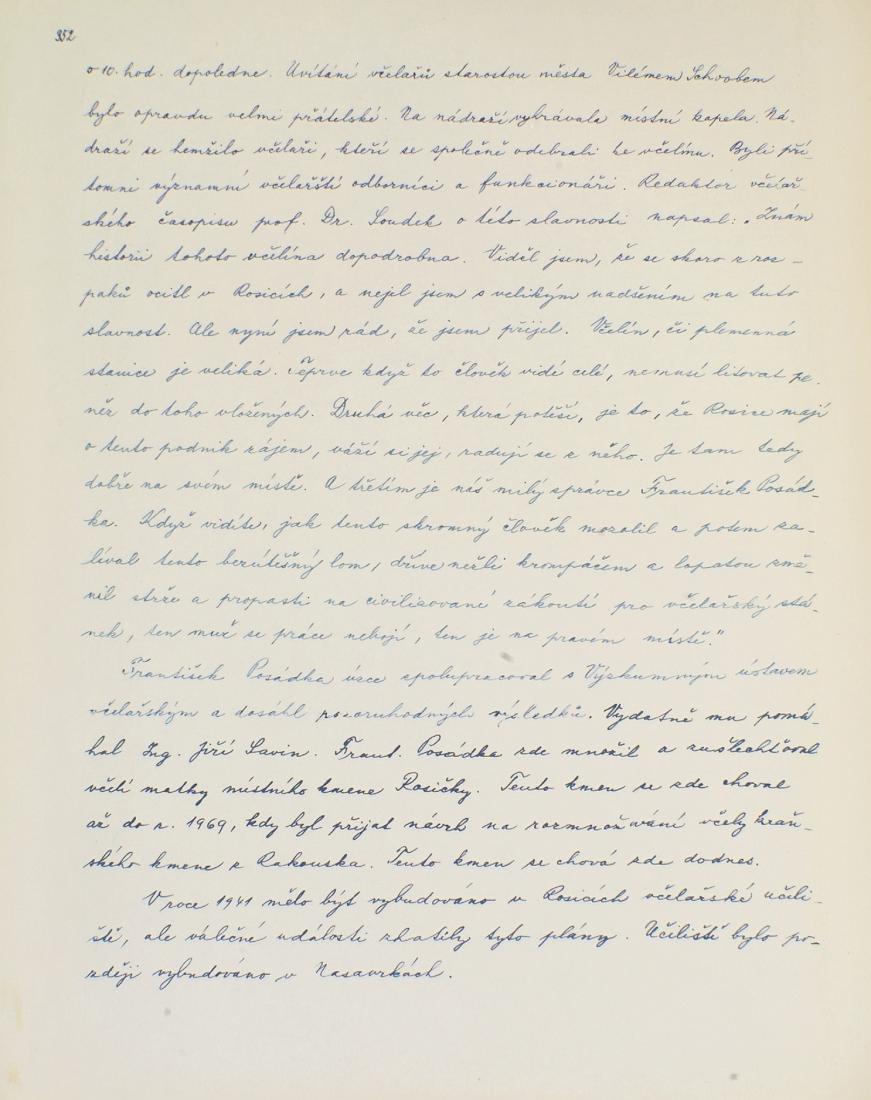 352
o 10. hod. dopoledne. Uvítání včelařů starostou města Vilémem Schvobem
bylo opravdu velmi přátelské. Na nádraží vyhrávala místní kapela. Ná-
draží se hemžilo včelaři, kteří se společně odebrali ke včelínu. Byli pří-
tomni významní včelařští odborníci a funkcionáři. Redaktor včelař-
ského časopisu prof. Dr. Soudek o této slavnosti napsal: „Znám
historii tohoto včelína dopodrobna. Viděl jsem, že se skoro z roz-
paků ocitl v Rosicích, a nejel jsem s velikým nadšením na tuto
slavnost. Ale nyní jsem rád, že jsem přijel. Včelín, či plemenná
stanice je veliká. Teprve když to člověk vidí celé, nemusí litovat pe-
něz do toho vložených. Druhá věc, která potěší, je to, že Rosice mají
o tento podnik zájem, váží si jej, radují se z něho. Je tam tedy
dobře na svém místě. A třetím je náš milý správce František Posád-
ka. Když vidíte, jak tento skromný člověk mozolil a potem za-
léval tento bezútěšný lom, dříve nežli krompáčem a lopatou změ-
nil strže a propasti na civilizované zákoutí pro včelařský stá-
nek, ten muž se práce nebojí, ten je na pravém místě."
František Posádka úzce spolupracoval s Výzkumným ústavem
včelařským a dosáhl pozoruhodných výsledků. Vydatně mu pomá-
hal Ing. Jiří Savin. Frant. Posádka zde množil a zušlechťoval
včelí matky místního kmene Rosičky. Tento kmen se zde choval
až do r. 1969, kdy byl přijat návrh na rozmnožování včely kraň-
ského kmene z Rakouska. Tento kmen se chová zde dodnes.
V roce 1941 mělo být vybudováno v Rosicích včelařské učili-
ště, ale válečné události zhatily tyto plány. Učiliště bylo po-
zději vybudováno v Nasavrkách.